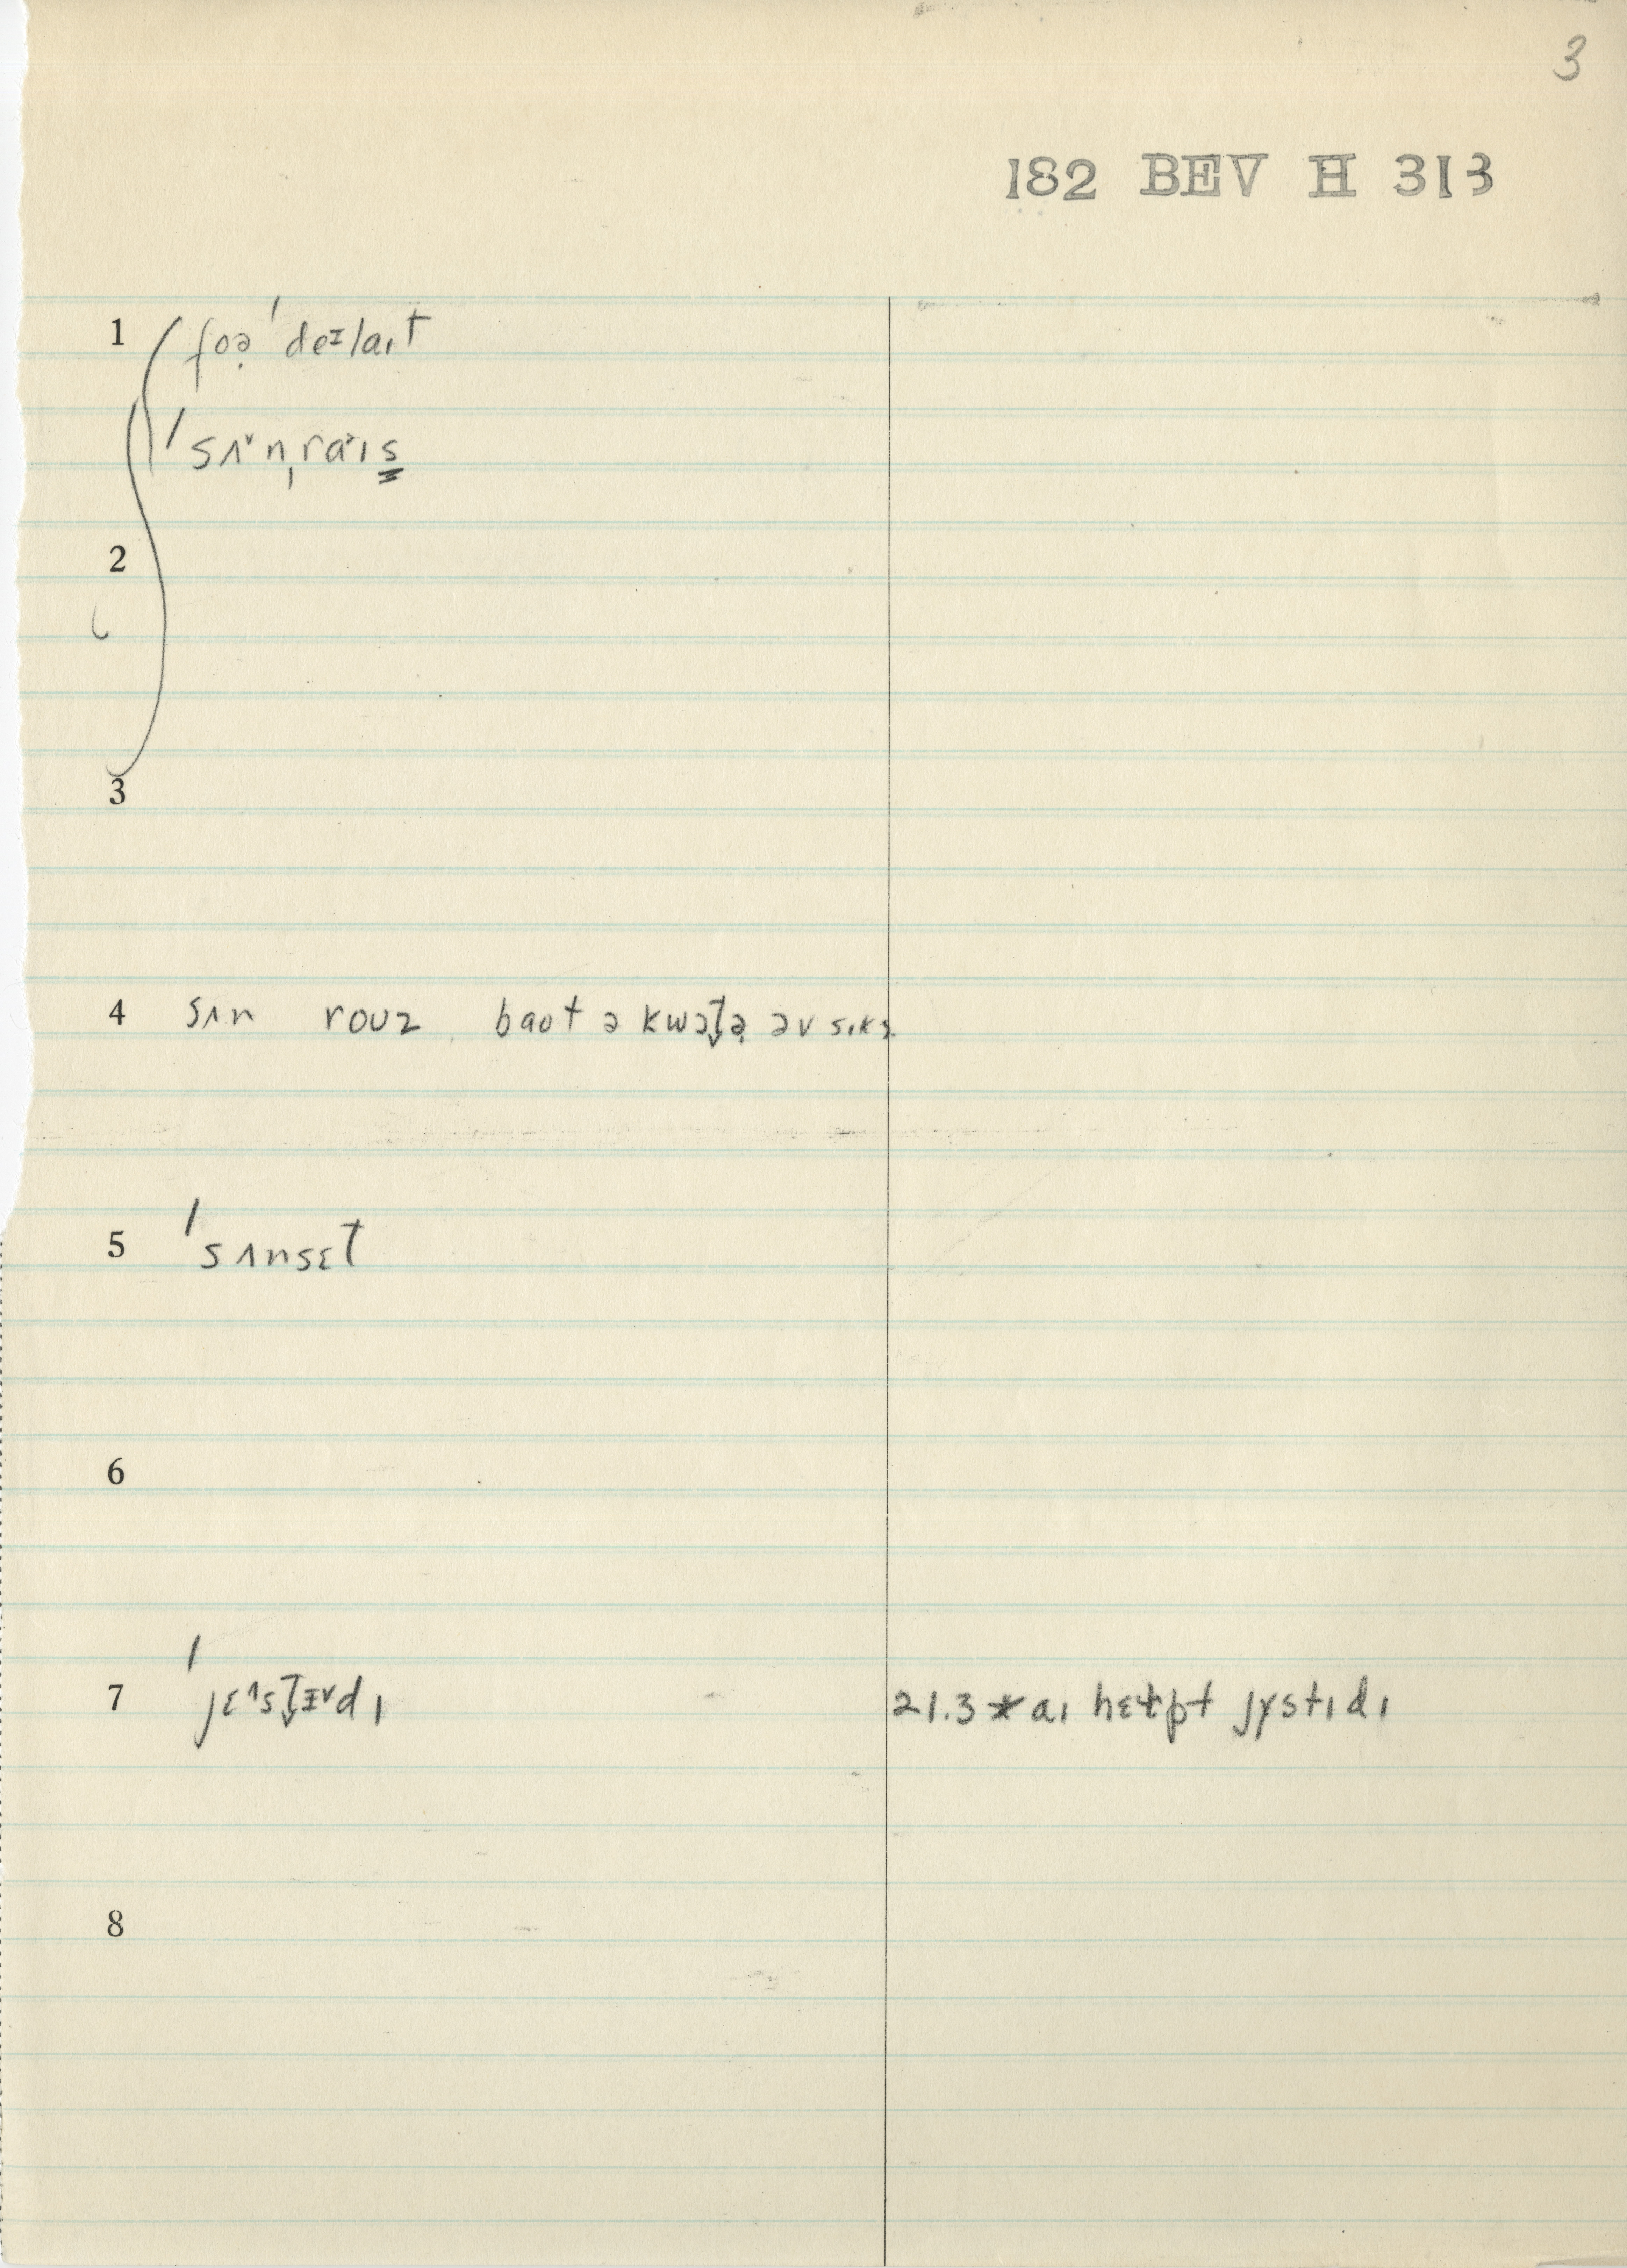 3
182 BEV H 313
1 foə̣ ˈdeɪlaɪt
ˈsʌ˅nˌra˃ɪs̳
2
3
4 sʌn roʊz baʊt ə kwɔt̬ə̣ əv sɪks
5 ˈsʌnsɛt
6
7 ˈjɛ^st̬ɪ˅dɪ 21.3 * aɪ hɛɫpt jɣstɪdɪ
8